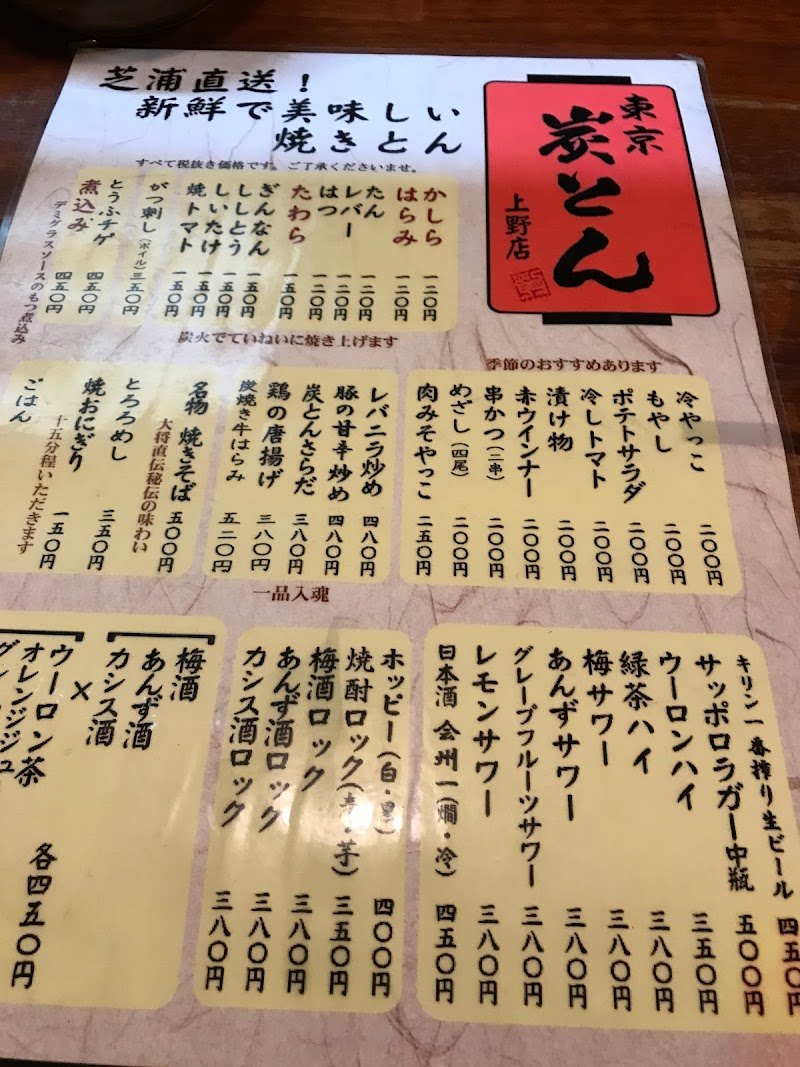 芝浦直送!
新鮮で美味しい
焼きとん
すべて税抜き価格です。ご了承くださいませ。
東京
炭とん
上野店
かしら 一二〇円
はらみ 一二〇円
たん 一二〇円
レバー 一二〇円
はつ 一二〇円
たわら 一五〇円
ぎんなん 一五〇円
ししとう 一五〇円
しいたけ 一五〇円
焼トマト 一五〇円
がつ刺し(ボイル) 三五〇円
とうふチゲ 四五〇円
煮込み 四五〇円
デミグラスソースのもつ煮込み
炭火でていねいに焼き上げます
季節のおすすめあります
冷やっこ 二〇〇円
もやし 二〇〇円
ポテトサラダ 二〇〇円
冷しトマト 二〇〇円
漬け物 二〇〇円
赤ウインナー 二〇〇円
串かつ(二串) 二〇〇円
めざし(四尾) 二〇〇円
肉みそやっこ 二五〇円
レバニラ炒め 四八〇円
豚の甘辛炒め 四八〇円
炭とんさらだ 三八〇円
鶏の唐揚げ 三八〇円
炭焼き牛はらみ 五二〇円
名物 焼きそば 五〇〇円
大将直伝秘伝の味わい
とろろめし 三五〇円
焼おにぎり
十五分程いただきます
ごはん 一五〇円
一品入魂
キリン一番搾り生ビール 四五〇円
サッポロラガー中瓶 五〇〇円
ウーロンハイ 三五〇円
緑茶ハイ 三八〇円
梅サワー 三八〇円
あんずサワー 三八〇円
グレープフルーツサワー 三八〇円
レモンサワー 三八〇円
日本酒 会州一(燗・冷) 四五〇円
ホッピー(白・黒) 四〇〇円
焼酎ロック(麦・芋) 三五〇円
梅酒ロック 三八〇円
あんず酒ロック 三八〇円
カシス酒ロック 三八〇円
梅酒
あんず酒
カシス酒
×
ウーロン茶
オレンジジュ
各四五〇円